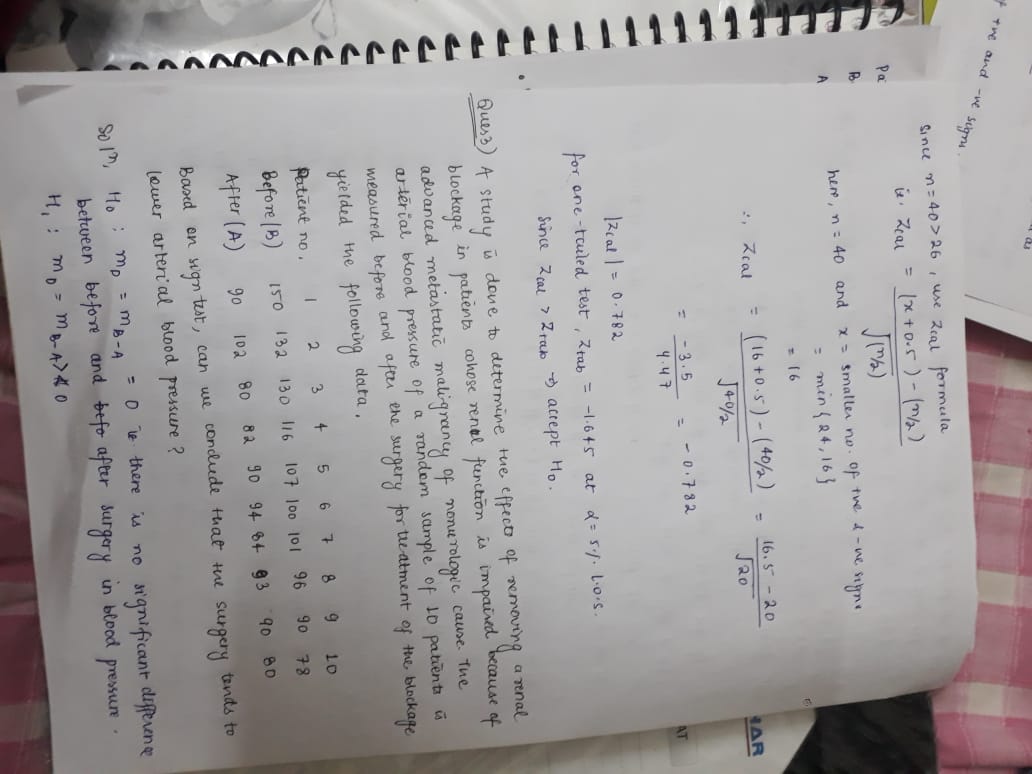 as
f +ve and -ve signs.
Pa
B
A
Since n = 40 > 26, use Zcal formula
ie. Zcal = (x + 0.5) - (n/2) / √(n/2)
here, n = 40 and x = smaller no. of +ve & -ve signs
= min {24, 16}
= 16
∴, Zcal = (16 + 0.5) - (40/2) / √40/2 = 16.5 - 20 / √20
= -3.5 / 4.47 = -0.782
|Zcal| = 0.782
for one-tailed test, Ztab = -1.645 at α = 5%. L.O.S.
Since Zcal > Ztab ⇒ accept H₀.
Ques3) A study is done to determine the effects of removing a renal
blockage in patients whose renal function is impaired because of
advanced metastatic malignancy of nonurologic cause. The
arterial blood pressure of a random sample of 10 patients is
measured before and after the surgery for treatment of the blockage
yielded the following data.
Patient no. 1 2 3 4 5 6 7 8 9 10
Before (B) 150 132 130 116 107 100 101 96 90 78
After (A) 90 102 80 82 90 94 84 93 90 80
Based on sign test, can we conclude that the surgery tends to
lower arterial blood pressure?
Soln, H₀ : m_D = m_B-A = 0 ie there is no significant difference
between before and befo after surgery in blood pressure.
H₁ : m_D = m_B-A > 0
HAR
AT